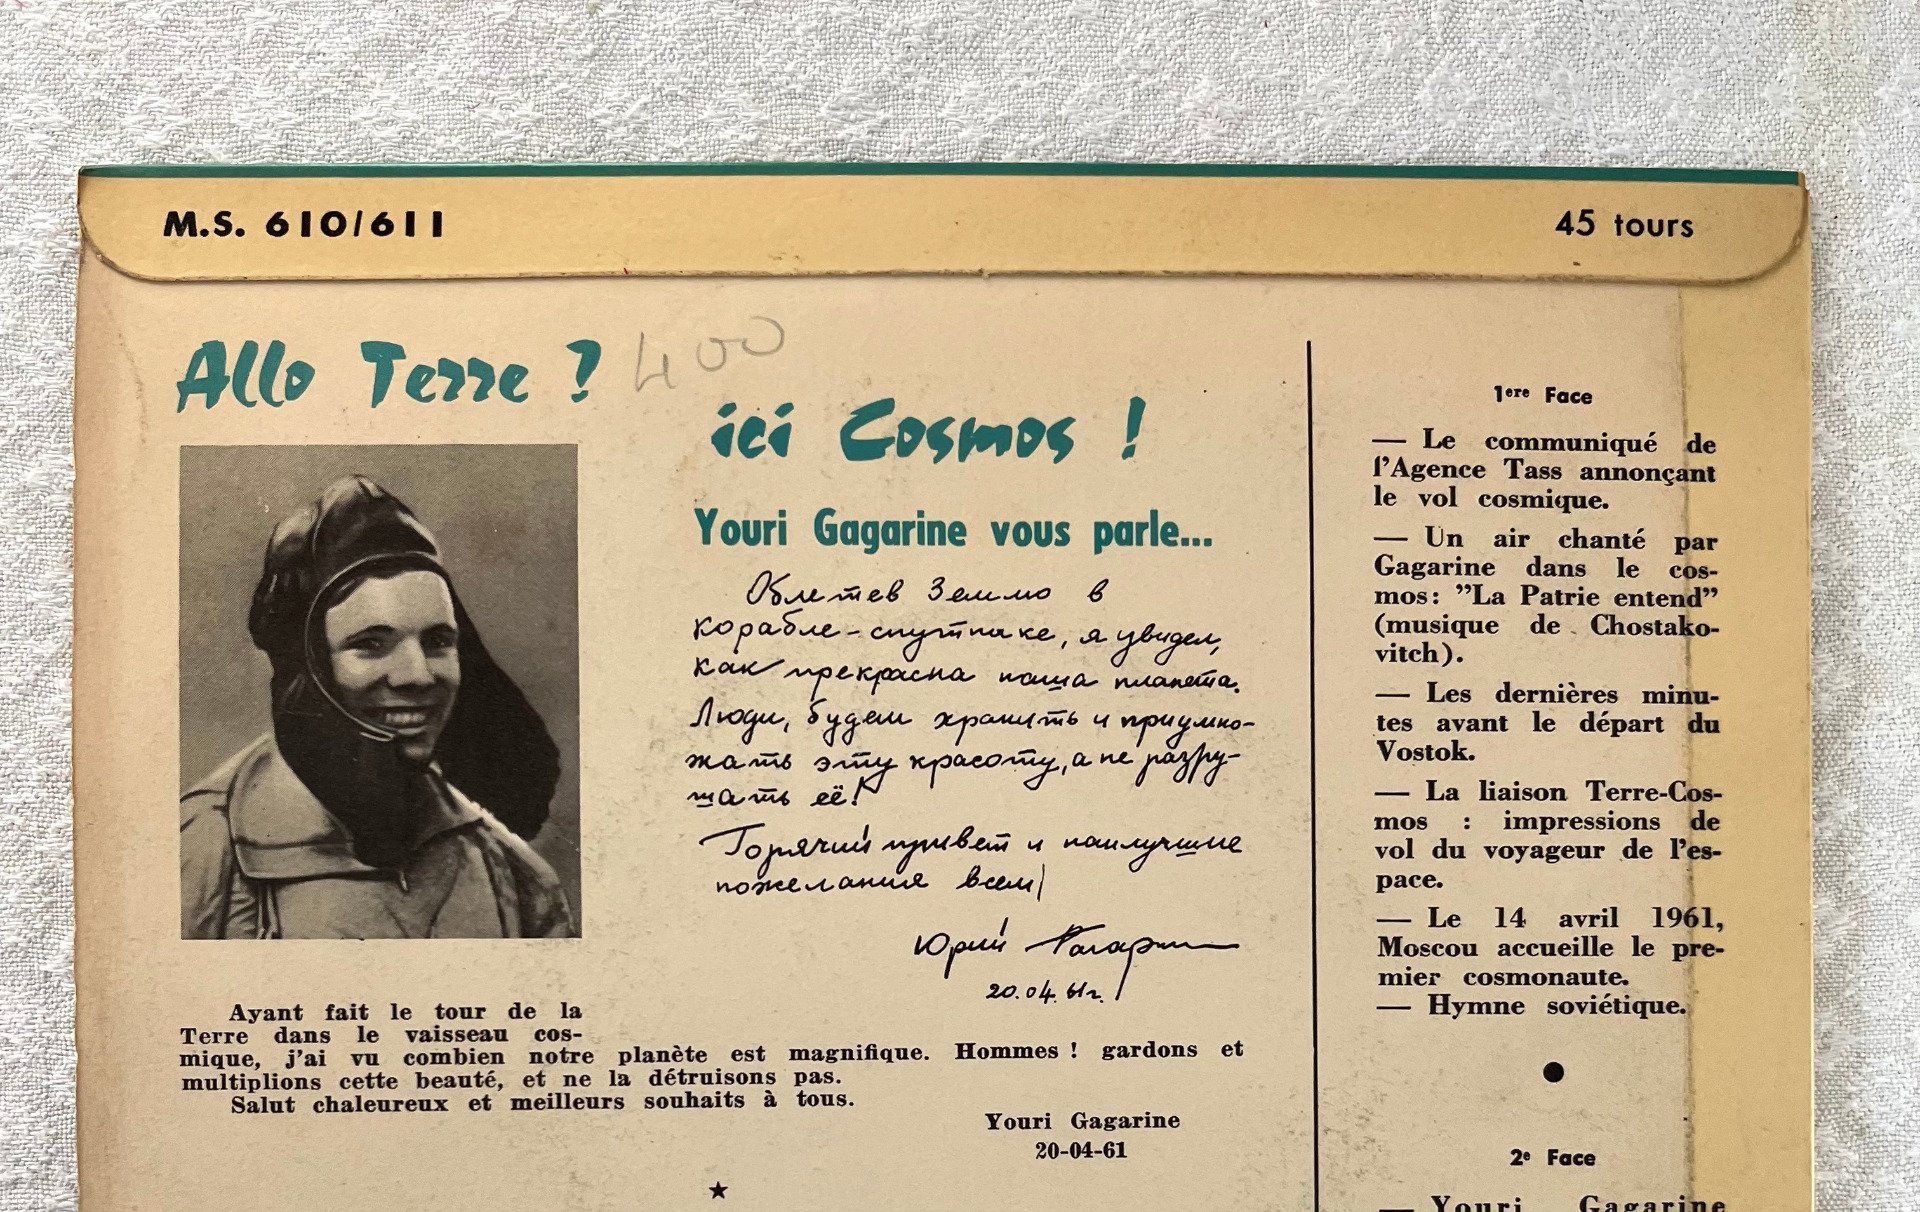 M.S. 610/611
45 tours
Allo Terre ?
400
ici Cosmos !
Youri Gagarine vous parle...
Облетев Землю в
корабле-спутнике, я увидел,
как прекрасна наша планета.
Люди, будем хранить и приумно-
жать эту красоту, а не разру-
шать её!
Горячий привет и наилучшие
пожелания всем!
Юрий Гагарин
20.04.61г.
Ayant fait le tour de la
Terre dans le vaisseau cos-
mique, j'ai vu combien notre planète est magnifique. Hommes ! gardons et
multiplions cette beauté, et ne la détruisons pas.
Salut chaleureux et meilleurs souhaits à tous.
Youri Gagarine
20-04-61
★
1ere Face
— Le communiqué de
l'Agence Tass annonçant
le vol cosmique.
— Un air chanté par
Gagarine dans le cos-
mos: "La Patrie entend"
(musique de Chostako-
vitch).
— Les dernières minu-
tes avant le départ du
Vostok.
— La liaison Terre-Cos-
mos : impressions de
vol du voyageur de l'es-
pace.
— Le 14 avril 1961,
Moscou accueille le pre-
mier cosmonaute.
— Hymne soviétique.
●
2e Face
— Youri Gagarine